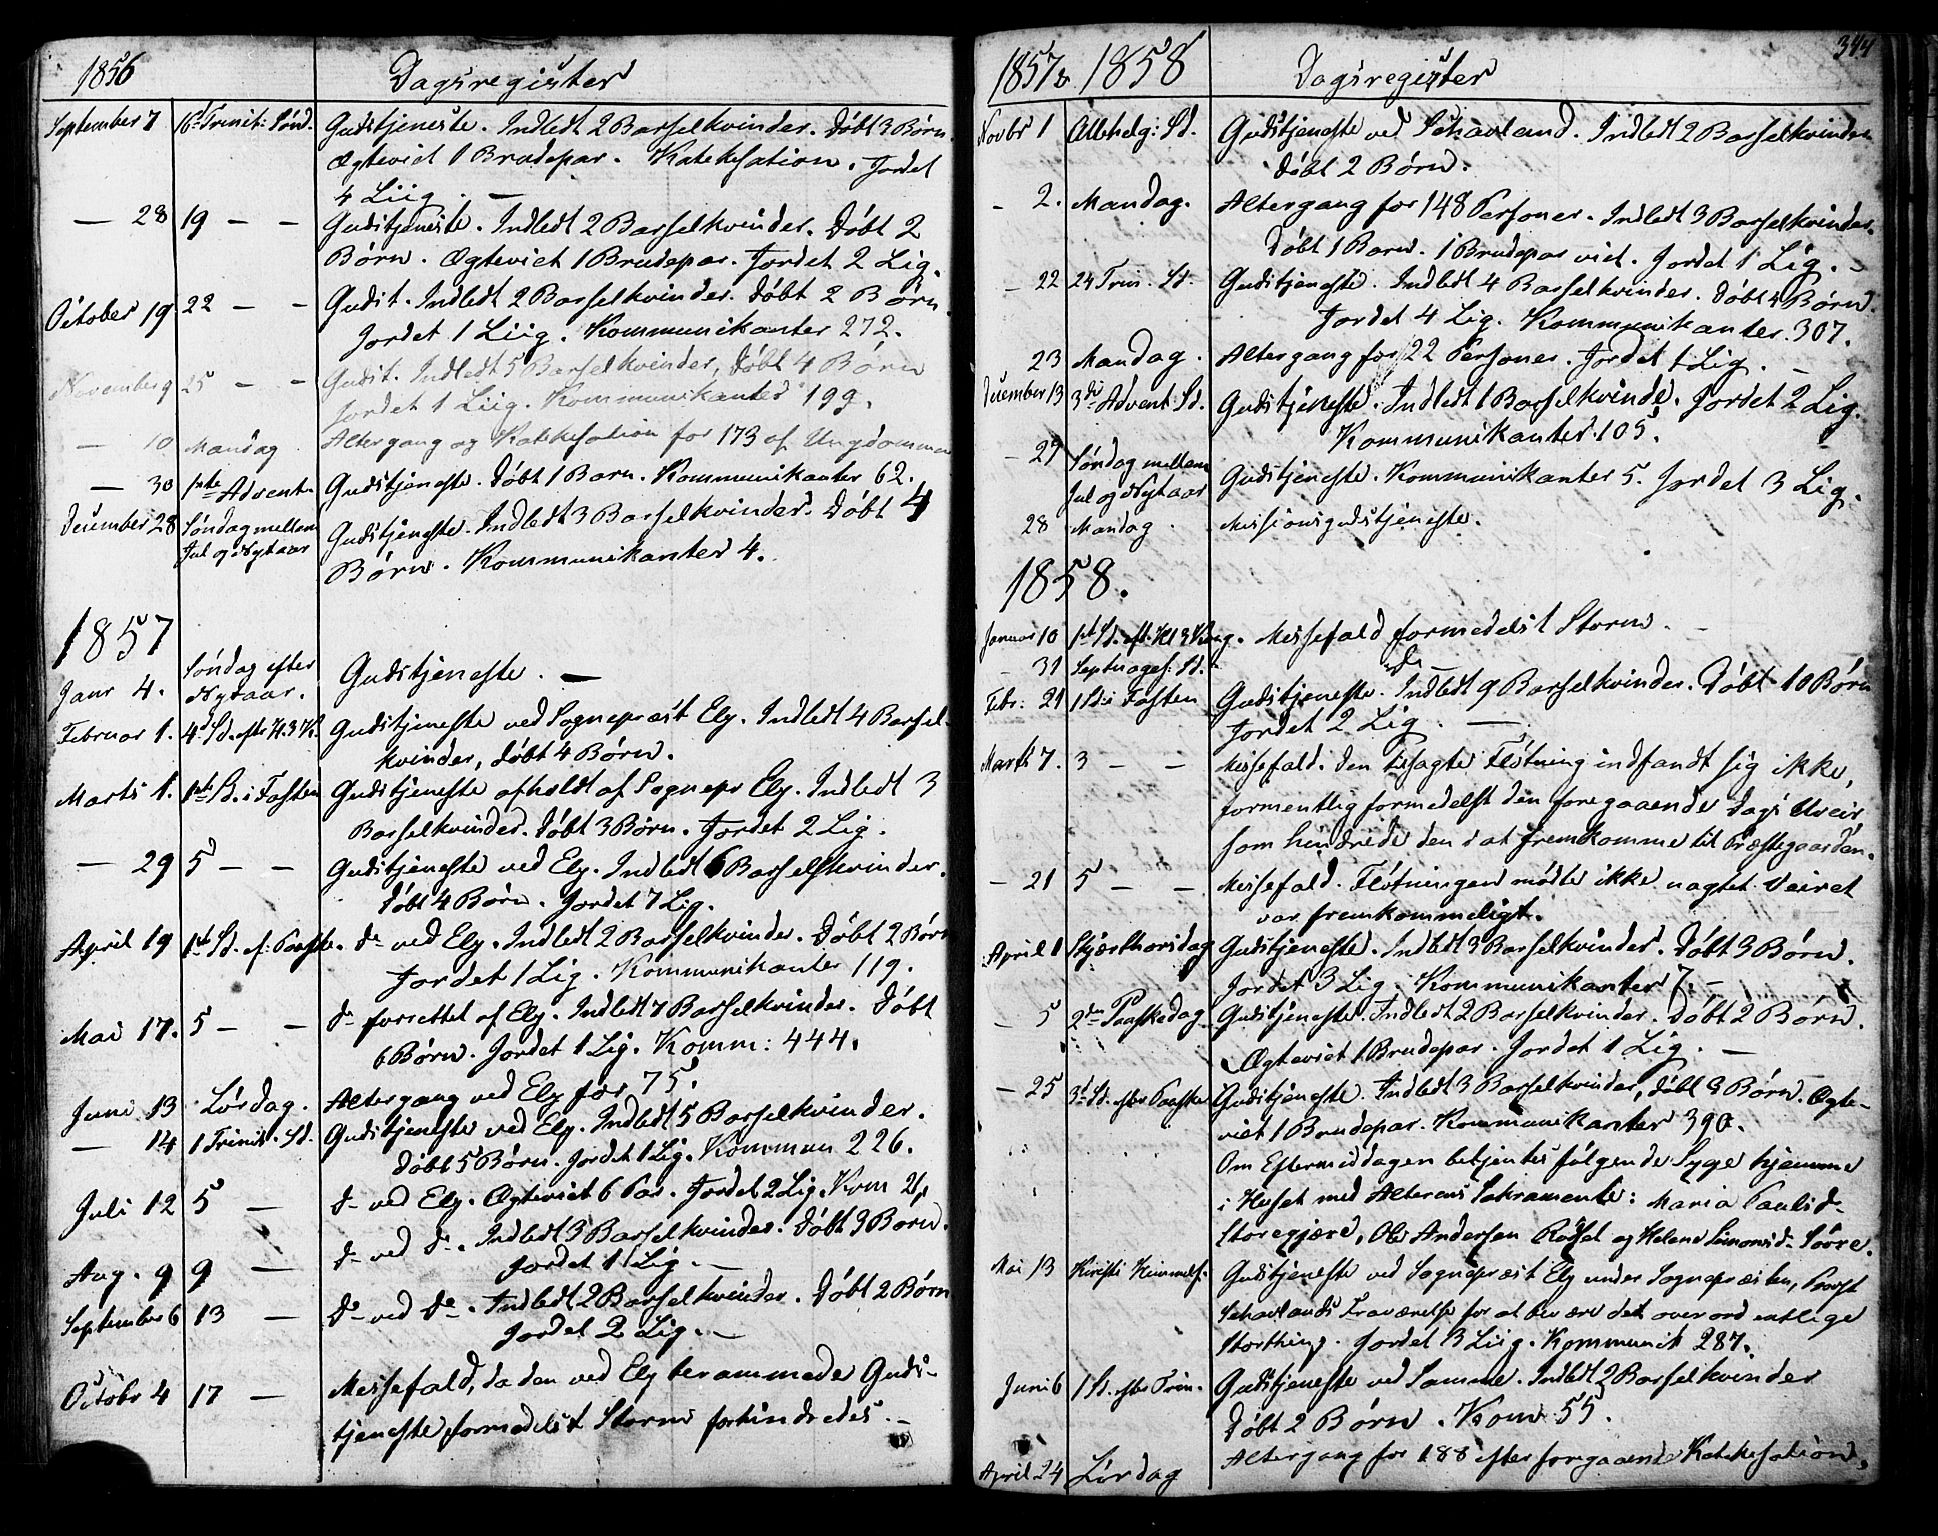 1856 Dagsregister
September 7 16 Trinit: Sönd. Gudstjeneste. Indledt 2 Barselkvinder. Döbt 3 Börn.
Ægteviet 1 Brudepar. Katekesation. Jordet
4 Liig. —
— 28 19 — — Gudstjeneste. Indledt 2 Barselkvinder. Döbt 2
Börn. Ægteviet 1 Brudepar. Jordet 2 Lig.
October 19 22 — — Gudst. Indledt 2 Barselkvinder. Döbt 2 Börn.
Jordet 1 Liig. Kommunikanter 272.
November 9 25 — — Gudst. Indledt 5 Barselkvinder, Döbt 4 Börn
Jordet 1 Liig. Kommunikanter 199.
— 10 Mandag Altergang og Katekesation for 173 af Ungdommen
— 30 1ste Advent Gudstjeneste. Döbt 1 Barn. Kommunikanter 62.
December 28 Söndag mellem Gudstjeneste. Indledt 3 Barselkvinder. Döbt 4
Jul og Nytaar Börn. Kommunikanter 4.
1857
Janr 4. Söndag efter Nytaar. Gudstjeneste. —
Februar 1. 4d Sd. eftr H. 3 K. Gudstjeneste ved Sognepræst Ely. Indledt 4 Barsel-
kvinder, döbt 4 Börn.
Marts 1. 1ste S. i Fasten Gudstjeneste afholdt af Sognepr Ely. Indledt 3
Barselkvinder. Döbt 3 Börn. Jordet 2 Lig.
— 29 5 — — Gudstjeneste ved Ely. Indledt 6 Barselskvinder.
Döbt 4 Börn. Jordet 7 Lig.
April 19 1ste Sd. ef: Paaske. do ved Ely. Indledt 2 Barselkvinder. Döbt 2 Börn
Jordet 1 Lig. Kommunikanter 119.
Mai 17. 5 — — do forrettet af Ely. Indledt 7 Barselkvinder. Döbt
6 Börn. Jordet 1 Lig. Komm: 444.
Juni 13 Lördag. Altergang ved Ely for 75.
— 14 1 Trinit. Sd. Gudstjeneste ved Ely. Indledt 5 Barselkvinder.
Döbt 5 Börn. Jordet 1 Lig. Kommun 226.
Juli 12 5 — do ved Ely. Ægteviet 6 Par. Jordet 2 Lig. Kom
Aug. 9 9 — do ved do. Indledt 3 Barselkvinder. Döbt 3 Börn.
Jordet 1 Lig. —
September 6 13 — do ved do. Indledt 2 Barselkvinder. Döbt 2 Börn
Jordet 2 Lig. —
Octobr 4 17 — Messefald, da den ved Ely berammede Guds-
tjeneste formedelst Storm forhindredes. —
344
1857 & 1858 Dagsregister
Novbr 1 Allehelg: Sd. Gudstjeneste ved Schavland. Indledt 2 Barselkvinder.
Döbt 2 Börn.
— 2. Mandag. Altergang for 148 Personer. Indledt 3 Barselkvinder.
Döbt 1 Barn. 1 Brudepar viet. Jordet 1 Lig. —
— 22 24 Trin. Sd. Gudstjeneste. Indledt 4 Barselkvinder. Döbt 4 Börn.
Jordet 4 Lig. Kommunikanter. 307.
23 Mandag. Altergang for 22 Personer. Jordet 1 Lig. —
December 13 3die Advent: Sd. Gudstjeneste. Indledt 1 Barselkvinde. Jordet 2 Lig.
Kommunikanter. 105.
— 27 Söndag mellem Jul og Nytaar Gudstjeneste. Kommunikanter 5. Jordet 3 Lig.
28 Mandag. Missionsgudstjeneste.
1858.
Januar 10 1st Sd. eft. Hl 3 Kong. Messefald formedelst Storm. —
— 31 Septuages: Sd. do —
Febr: 21 1 Sd i Fasten Gudstjeneste. Indledt 9 Barselkvinder. Döbt 10 Börn
Jordet 2 Lig. —
Marts 7. 3 — — Messefald. Den tilsagte Flötning indfandt sig ikke,
formentlig formedelst den foregaaende Dags Uveir
som hindrede den i at fremkomme til Præstegaarden.
— 21 5 — — Messefald. Flötningen mödte ikke uagtet Veiret
var fremkommeligt.
April 1 Skjærthorsdag Gudstjeneste. Indledt 3 Barselkvinder. Döbt 3 Börn.
Jordet 3 Lig. Kommunikanter 7. —
— 5 2den Paaskedag Gudstjeneste. Indledt 2 Barselkvinder. Döbt 2 Börn.
Ægteviet 1 Brudepar. Jordet 1 Lig. —
— 25 3d Sd. efter Paaske Gudstjeneste. Indledt 3 Barselkvinder, döbt 3 Börn. Ægte-
viet 1 Brudepar. Kommunikanter 390.
Om Eftermiddagen betjentes fölgende Syge hjemme
i Huset med Alterens Sakramente: Maria Paulsd.
Storegjære, Ole Andersen Rössel og Helene Simonsd. Sörre.
Mai 13 Kristi Himmelf. Gudstjeneste ved Sognepræst Ely under Sognepræsten, Provst
Schavlands Fraværelse for at bivære det overordentlige
Storthing. Jordet 3 Liig. Kommunik 287.
Juni 6 1 Sd. efter Trin. Gudstjeneste ved Samme. Indledt 2 Barselkvinder
Döbt 2 Börn. Kom 55.
April 24 Lördag Altergang for 188 efter foregaaende Katekesation.